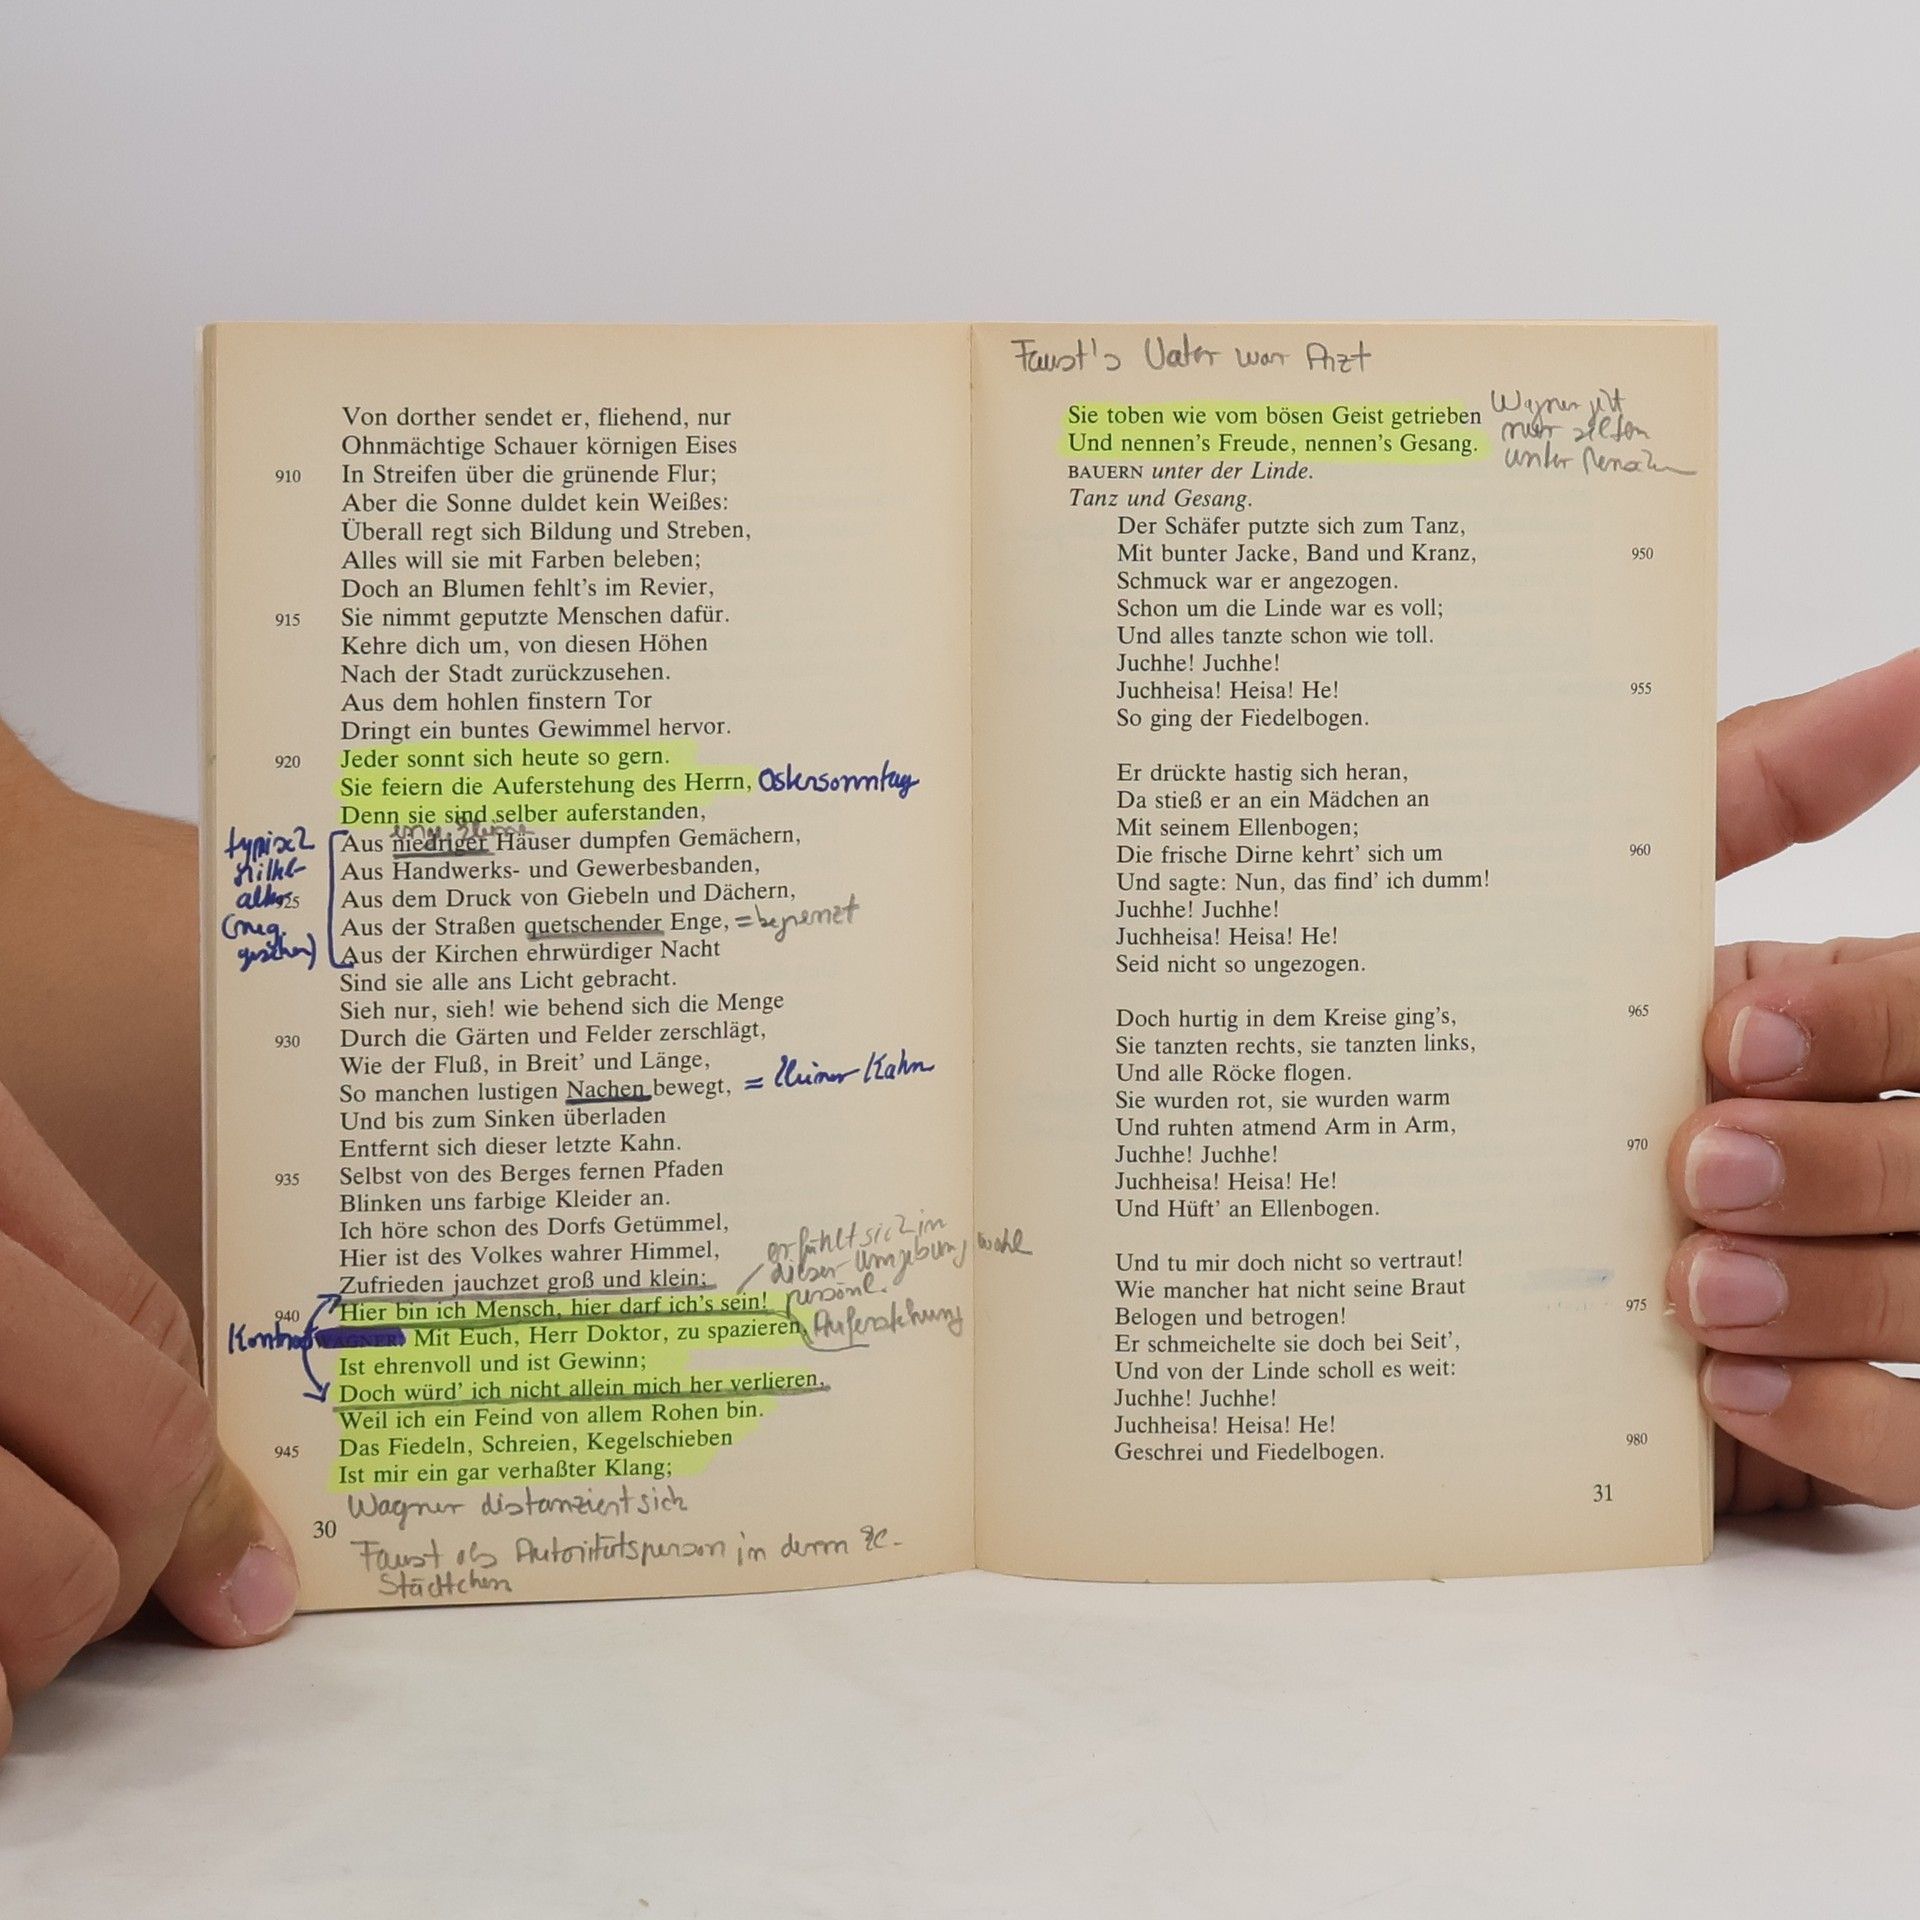 Von dorther sendet er, fliehend, nur
Ohnmächtige Schauer körnigen Eises
910 In Streifen über die grünende Flur;
Aber die Sonne duldet kein Weißes:
Überall regt sich Bildung und Streben,
Alles will sie mit Farben beleben;
Doch an Blumen fehlt's im Revier,
915 Sie nimmt geputzte Menschen dafür.
Kehre dich um, von diesen Höhen
Nach der Stadt zurückzusehen.
Aus dem hohlen finstern Tor
Dringt ein buntes Gewimmel hervor.
920 Jeder sonnt sich heute so gern.
Sie feiern die Auferstehung des Herrn, Ostersonntag
Denn sie sind selber auferstanden,
enge
typisch
Aus niedriger Häuser dumpfen Gemächern,
Aus Handwerks- und Gewerbesbanden,
925 Aus dem Druck von Giebeln und Dächern,
(neg. Aus der Straßen quetschender Enge, = begrenzt
gesehen) Aus der Kirchen ehrwürdiger Nacht
Sind sie alle ans Licht gebracht.
Sieh nur, sieh! wie behend sich die Menge
930 Durch die Gärten und Felder zerschlägt,
Wie der Fluß, in Breit' und Länge,
So manchen lustigen Nachen bewegt, = kleiner Kahn
Und bis zum Sinken überladen
Entfernt sich dieser letzte Kahn.
935 Selbst von des Berges fernen Pfaden
Blinken uns farbige Kleider an.
Ich höre schon des Dorfs Getümmel,
Hier ist des Volkes wahrer Himmel,
er fühlt sich in
dieser Umgebung wohl
Zufrieden jauchzet groß und klein:
persönl.
940 Hier bin ich Mensch, hier darf ich's sein!
Auferstehung
Kontrast WAGNER. Mit Euch, Herr Doktor, zu spazieren,
Ist ehrenvoll und ist Gewinn;
Doch würd' ich nicht allein mich her verlieren,
Weil ich ein Feind von allem Rohen bin.
945 Das Fiedeln, Schreien, Kegelschieben
Ist mir ein gar verhaßter Klang;
Wagner distanziert sich
30
Faust als Autoritätsperson in dem
Städtchen
Faust's Vater war Arzt
Sie toben wie vom bösen Geist getrieben
Und nennen's Freude, nennen's Gesang.
Wagner
nur selten
unter Menschen
BAUERN unter der Linde.
Tanz und Gesang.
Der Schäfer putzte sich zum Tanz,
Mit bunter Jacke, Band und Kranz, 950
Schmuck war er angezogen.
Schon um die Linde war es voll;
Und alles tanzte schon wie toll.
Juchhe! Juchhe!
Juchheisa! Heisa! He! 955
So ging der Fiedelbogen.
Er drückte hastig sich heran,
Da stieß er an ein Mädchen an
Mit seinem Ellenbogen;
Die frische Dirne kehrt' sich um 960
Und sagte: Nun, das find' ich dumm!
Juchhe! Juchhe!
Juchheisa! Heisa! He!
Seid nicht so ungezogen.
Doch hurtig in dem Kreise ging's, 965
Sie tanzten rechts, sie tanzten links,
Und alle Röcke flogen.
Sie wurden rot, sie wurden warm
Und ruhten atmend Arm in Arm,
Juchhe! Juchhe! 970
Juchheisa! Heisa! He!
Und Hüft' an Ellenbogen.
Und tu mir doch nicht so vertraut!
Wie mancher hat nicht seine Braut
Belogen und betrogen! 975
Er schmeichelte sie doch bei Seit',
Und von der Linde scholl es weit:
Juchhe! Juchhe!
Juchheisa! Heisa! He!
Geschrei und Fiedelbogen. 980
31